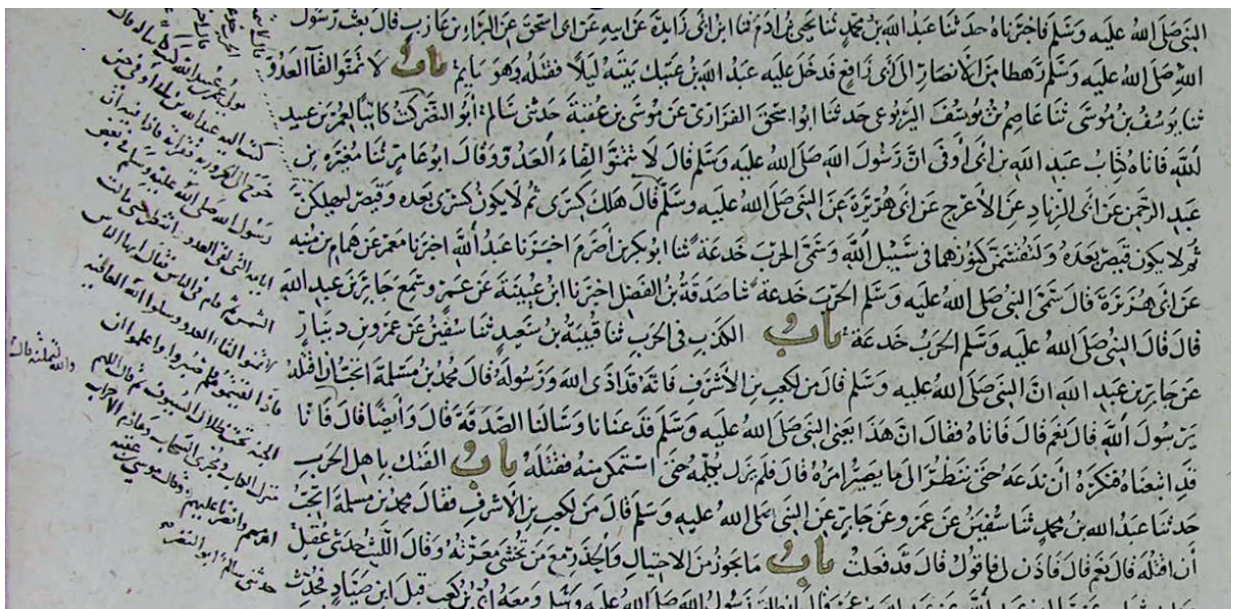 النبي صلى الله عليه وسلم فاخبرناه حدثنا عبد الله بن محمد ثنا يحيى بن ادم ثنا ابن ابي زايدة عن ابيه عن ابي اسحق عن البراء بن عازب قال بعث رسول
الله صلى الله عليه وسلم رهطا من الانصار الى ابي رافع فدخل عليه عبد الله بن عتيك بيته ليلا فقتله وهو نايم باب لا تمنوا لقاء العدو
ثنا يوسف بن موسى ثنا عاصم بن يوسف اليربوعي حدثنا ابو اسحق الفزاري عن موسى بن عقبة حدثني سالم ابو النضر كنت كاتبا لعمر بن عبيد
الله فاتاه كتاب عبد الله بن ابي اوفى ان رسول الله صلى الله عليه وسلم قال لا تمنوا لقاء العدو وقال ابو عامر ثنا مغيرة بن
عبد الرحمن عن ابي الزناد عن الاعرج عن ابي هريرة عن النبي صلى الله عليه وسلم قال هلك كسرى ثم لا يكون كسرى بعده وقيصر ليهلكن
ثم لا يكون قيصر بعده ولتقسمن كنوزهما في سبيل الله وسمى الحرب خدعة ثنا ابو بكر بن اصرم اخبرنا عبد الله اخبرنا معمر عن همام بن منبه
عن ابي هريرة قال سمى النبي صلى الله عليه وسلم الحرب خدعة ثنا صدقة بن الفضل اخبرنا ابن عيينة عن عمرو سمع جابر بن عبد الله
قال قال النبي صلى الله عليه وسلم الحرب خدعة باب الكذب في الحرب ثنا قتيبة بن سعيد ثنا سفين عن عمرو بن دينار
عن جابر بن عبد الله ان النبي صلى الله عليه وسلم قال من لكعب بن الاشرف فانه قد اذى الله ورسوله قال محمد بن مسلمة اتحب ان اقتله
يرسول الله قال نعم قال فاتاه فقال ان هذا يعني النبي صلى الله عليه وسلم قد عنانا وسالنا الصدقة قال وايضا قال فانا
قد اتبعناه فنكره ان ندعه حتى ننظر الى ما يصير امره قال فلم يزل يكلمه حتى استمكن منه فقتله باب الفتك باهل الحرب
حدثنا عبد الله بن محمد ثنا سفين عن عمرو عن جابر عن النبي صلى الله عليه وسلم قال من لكعب بن الاشرف فقال محمد بن مسلمة اتحب
ان اقتله قال نعم قال فاذن لي فاقول قال قد فعلت باب ما يجوز من الاحتيال والحذر مع من تخشى معرته وقال الليث حدثني عقيل
عبد الله بن عمر قال انطلق رسول الله صلى الله عليه وسلم ومعه ابي بن كعب قبل ابن صياد فحدث
مولى عمر بن عبيد الله كنت كاتبا له قال
كتب اليه عبد الله بن ابي اوفى حين
خرج الى الحرورية فقراته فاذا فيه ان
رسول الله صلى الله عليه وسلم في بعض
ايامه التي لقي العدو انتظر حتى مالت
الشمس ثم قام في الناس فقال ايها الناس
لا تمنوا لقاء العدو وسلوا الله العافية
فاذا لقيتموهم فاصبروا واعلموا ان
الجنة تحت ظلال السيوف ثم قال اللهم
منزل الكتاب ومجري السحاب وهازم الاحزاب
اهزمهم وانصرنا عليهم وقال موسى بن عقبة
حدثني سالم ابو النضر